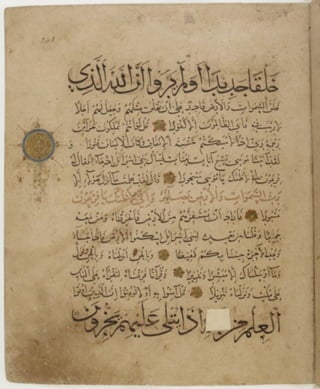 خلقا جديدا أولم يروا أن الله الذي
خلق السموات والأرض قادر على أن يخلق مثلهم وجعل لهم أجلا
لا ريب فيه فأبى الظالمون إلا كفورا قل لو أنتم تملكون خزائن
رحمة ربي إذا لأمسكتم خشية الإنفاق وكان الإنسان قتورا و
لقد آتينا موسى تسع آيات بينات فسئل بني إسرائيل إذ جاءهم فقال له
فرعون إني لأظنك يا موسى مسحورا قال لقد علمت ما أنزل هؤلاء إلا
رب السموات والأرض بصائر وإني لأظنك يا فرعون
مثبورا فأراد أن يستفزهم من الأرض فأغرقناه ومن معه
جميعا وقلنا من بعده لبني إسرائيل اسكنوا الأرض فإذا جاء
وعد الآخرة جئنا بكم لفيفا وبالحق أنزلناه وبالحق نزل
وما أرسلناك إلا مبشرا ونذيرا وقرآنا فرقناه لتقرأه على الناس
على مكث ونزلناه تنزيلا قل آمنوا به أو لا تؤمنوا إن الذين أوتوا
العلم من إذا يتلى عليهم يخرون